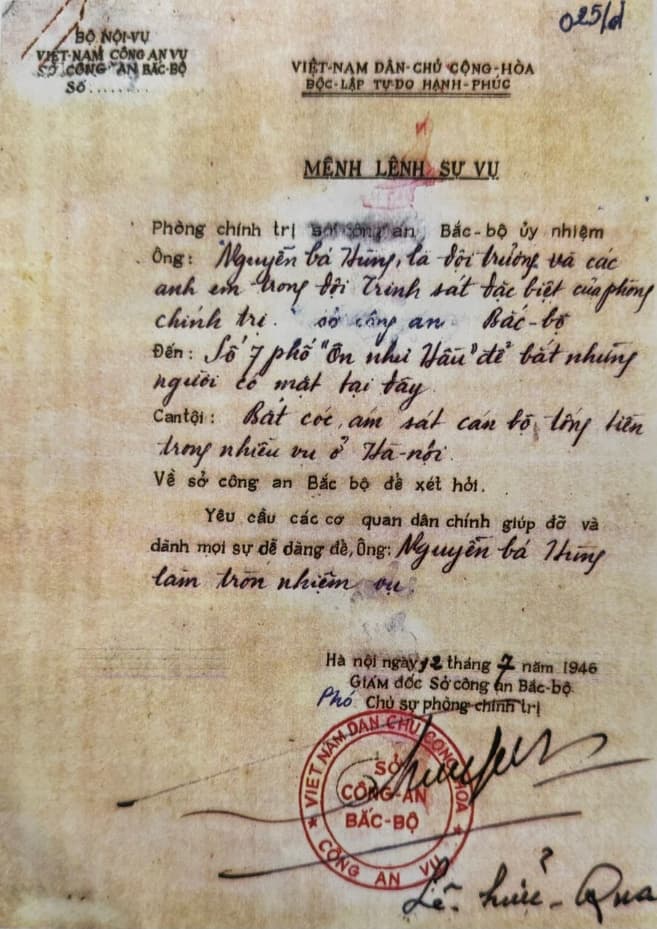 025/d
BỘ NỘI-VỤ
VIỆT-NAM CÔNG AN VỤ
SỞ CÔNG AN BẮC-BỘ
Số........
VIỆT-NAM DÂN-CHỦ CỘNG-HÒA
ĐỘC-LẬP TỰ DO HẠNH-PHÚC
MỆNH LỆNH SỰ VỤ
Phòng chính trị sở công an Bắc-bộ ủy nhiệm
Ông: Nguyễn bá Hùng, là đội trưởng và các
anh em trong đội Trinh sát đặc biệt của phòng
chính trị. sở công an Bắc-bộ
Đến: Số 7 phố "Ôn như Hầu" để bắt những
người có mặt tại đây.
Can tội: Bắt cóc, ám sát cán bộ, tống tiền
trong nhiều vụ ở Hà-nội.
Về sở công an Bắc bộ để xét hỏi.
Yêu cầu các cơ quan dân chính giúp đỡ và
dành mọi sự dễ dàng để, Ông: Nguyễn bá Hùng
làm tròn nhiệm vụ.
Hà nội ngày 12 tháng 7 năm 1946
GIÁM đốc Sở công an Bắc-bộ
Phó Chủ sự phòng chính trị
VIỆT NAM DÂN CHỦ CỘNG HÒA
SỞ
CÔNG-AN
BẮC-BỘ
CÔNG AN VỤ
Lê-hữu-Qua